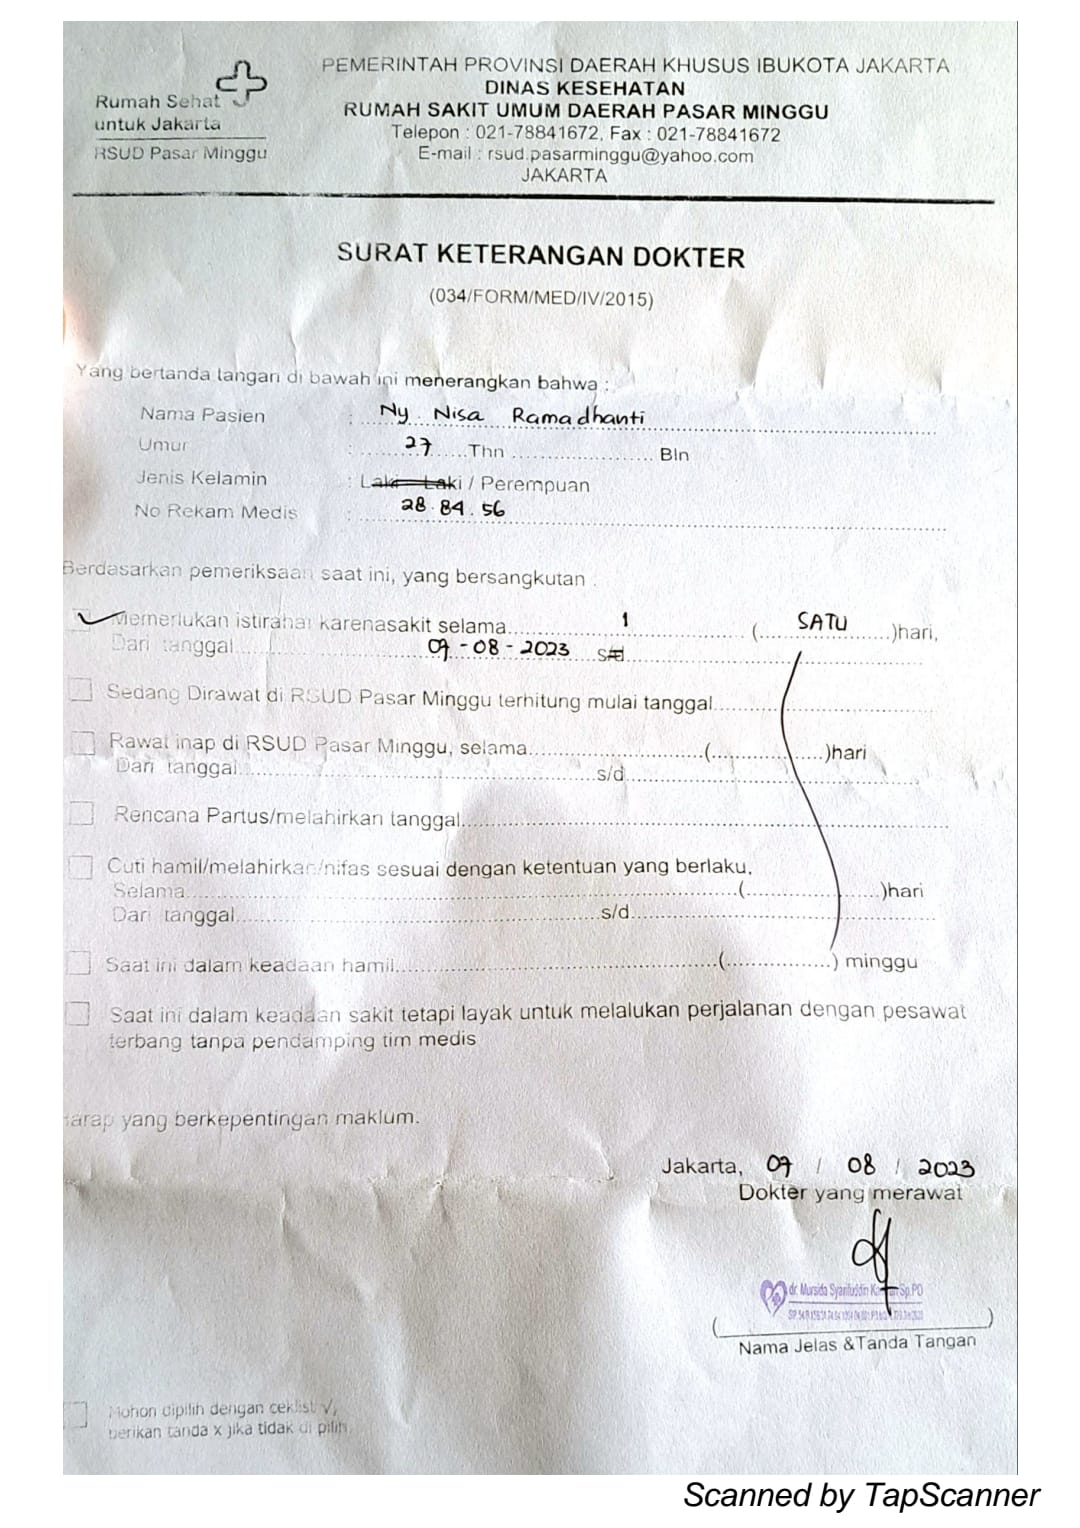 Rumah Sehat
untuk Jakarta
RSUD Pasar Minggu
PEMERINTAH PROVINSI DAERAH KHUSUS IBUKOTA JAKARTA
DINAS KESEHATAN
RUMAH SAKIT UMUM DAERAH PASAR MINGGU
Telepon : 021-78841672, Fax : 021-78841672
E-mail : rsud.pasarminggu@yahoo.com
JAKARTA
SURAT KETERANGAN DOKTER
(034/FORM/MED/IV/2015)
Yang bertanda tangan di bawah ini menerangkan bahwa :
Nama Pasien : Ny. Nisa Ramadhanti
Umur : 27 Thn .................... Bln
Jenis Kelamin : Laki - Laki / Perempuan
No Rekam Medis : 28.84.56
Berdasarkan pemeriksaan saat ini, yang bersangkutan :
Memerlukan istirahat karenasakit selama 1 (SATU)hari,
Dari tanggal 09-08-2023 s/d
Sedang Dirawat di RSUD Pasar Minggu terhitung mulai tanggal....................
Rawat inap di RSUD Pasar Minggu, selama....................(....................)hari
Dari tanggal....................s/d....................
Rencana Partus/melahirkan tanggal....................
Cuti hamil/melahirkan/nifas sesuai dengan ketentuan yang berlaku,
Selama....................(....................)hari
Dari tanggal....................s/d....................
Saat ini dalam keadaan hamil....................(....................) minggu
Saat ini dalam keadaan sakit tetapi layak untuk melalukan perjalanan dengan pesawat
terbang tanpa pendamping tim medis
Harap yang berkepentingan maklum.
Jakarta, 09 / 08 / 2023
Dokter yang merawat
dr. Mursida Syarifuddin Sp.PD
( )
Nama Jelas &Tanda Tangan
Mohon dipilih dengan ceklist √,
berikan tanda x jika tidak di pilih
Scanned by TapScanner